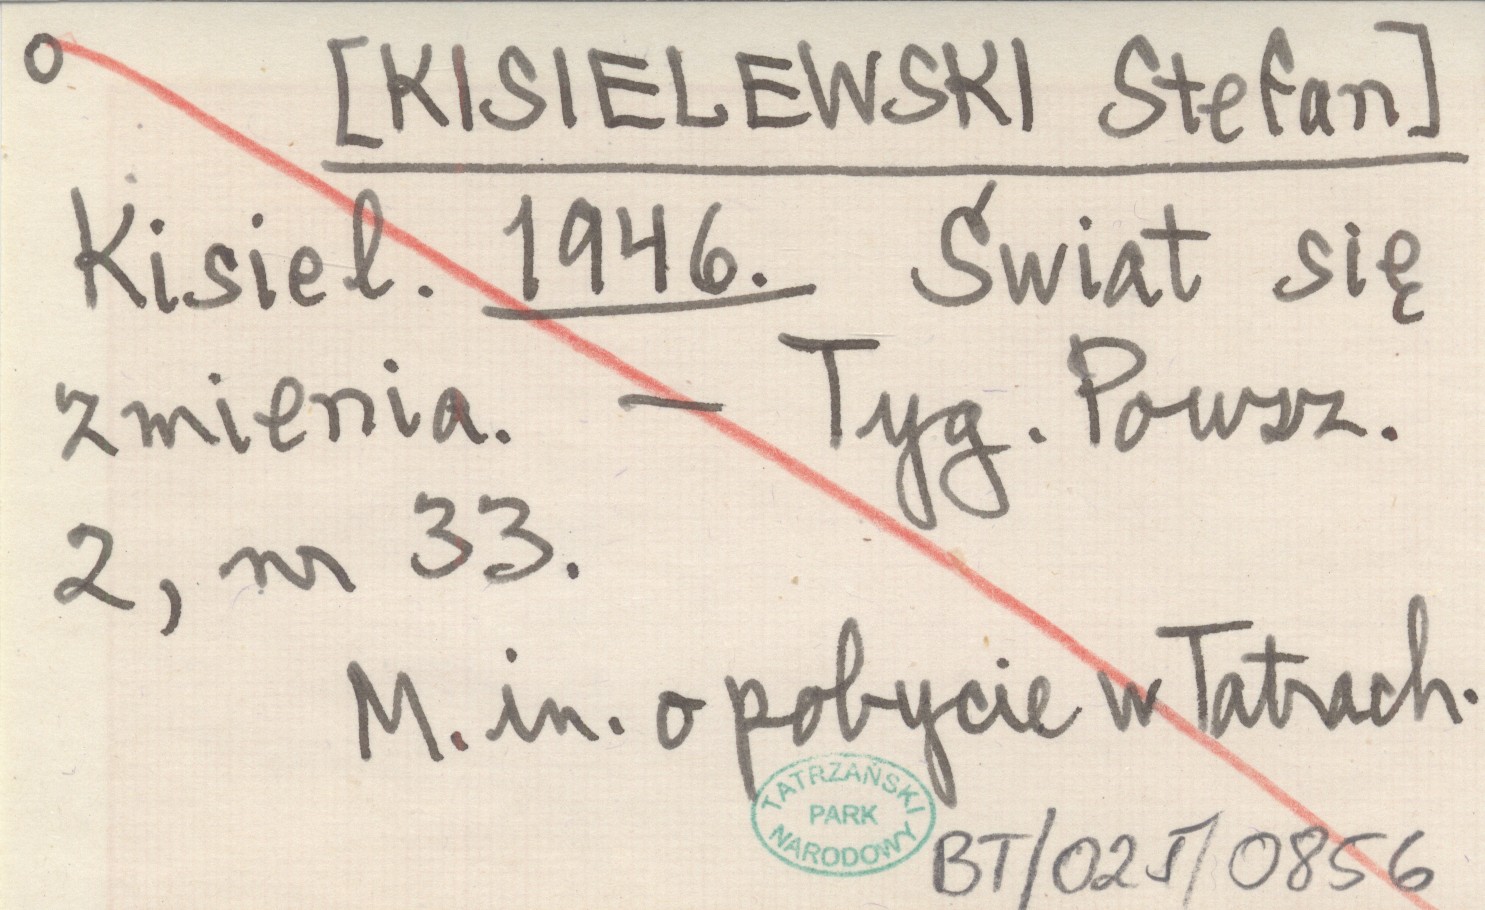 o [KISIELEWSKI Stefan]
Kisiel. 1946. Świat się
zmienia. — Tyg. Powsz.
2, nr 33.
M. in. o pobycie w Tatrach.
TATRZAŃSKI
PARK
NARODOWY
BT/025/0856